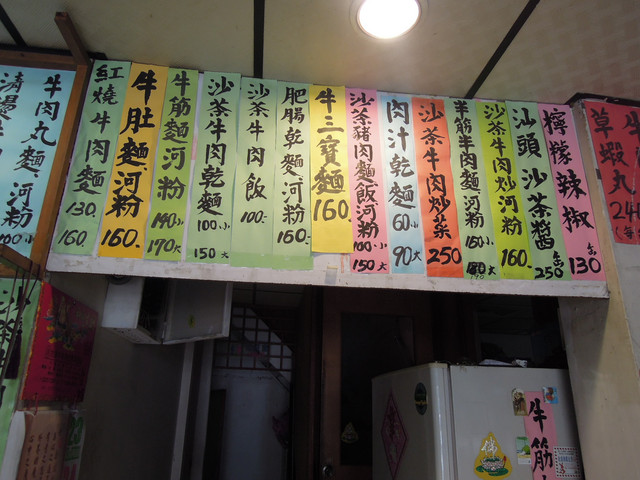 牛肉丸麵.河粉
100小
紅燒牛肉麵
130.
160
牛肚麵.河粉
160.
牛筋麵河粉
140小
170大
沙茶牛肉乾麵
100小
150大
沙茶牛肉飯
100.
肥腸乾麵.河粉
160.
牛三寶麵
160
沙茶豬肉麵飯河粉
100小
150大
肉汁乾麵
60小
90大
沙茶牛肉炒菜
250
羊筋羊肉麵.河粉
沙茶牛肉炒河粉
160.
汕頭沙茶醬
250
檸檬辣椒
130
草蝦丸
沙茶牛
牛筋
佛